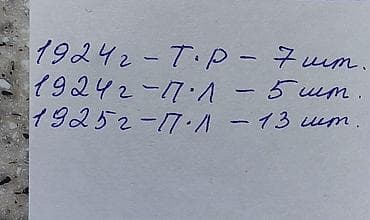 1924г – Т·Р – 7 шт.
1924г – П·Л – 5 шт.
1925г – П·Л – 13 шт.